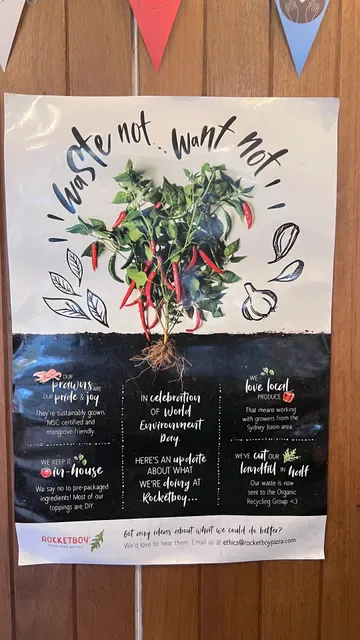 waste not.. want not
OUR
prawns ARE
OUR pride & joy
They're sustainably grown,
MSC certified and
mangrove friendly.
WE KEEP IT
in-house
We say no to pre-packaged
ingredients! Most of our
toppings are DIY.
IN celebration
OF World
Environment
Day,
HERE'S AN update
ABOUT WHAT
WE'RE doing AT
Rocketboy...
WE
love local
PRODUCE
That means working
with growers from the
Sydney basin area
WE'VE CUT OUR
landfill IN half
Our waste is now
sent to the Organic
Recycling Group <3
ROCKETBOY
Got any ideas about what we could do better?
We'd love to hear them. Email us at ethics@rocketboypizza.com